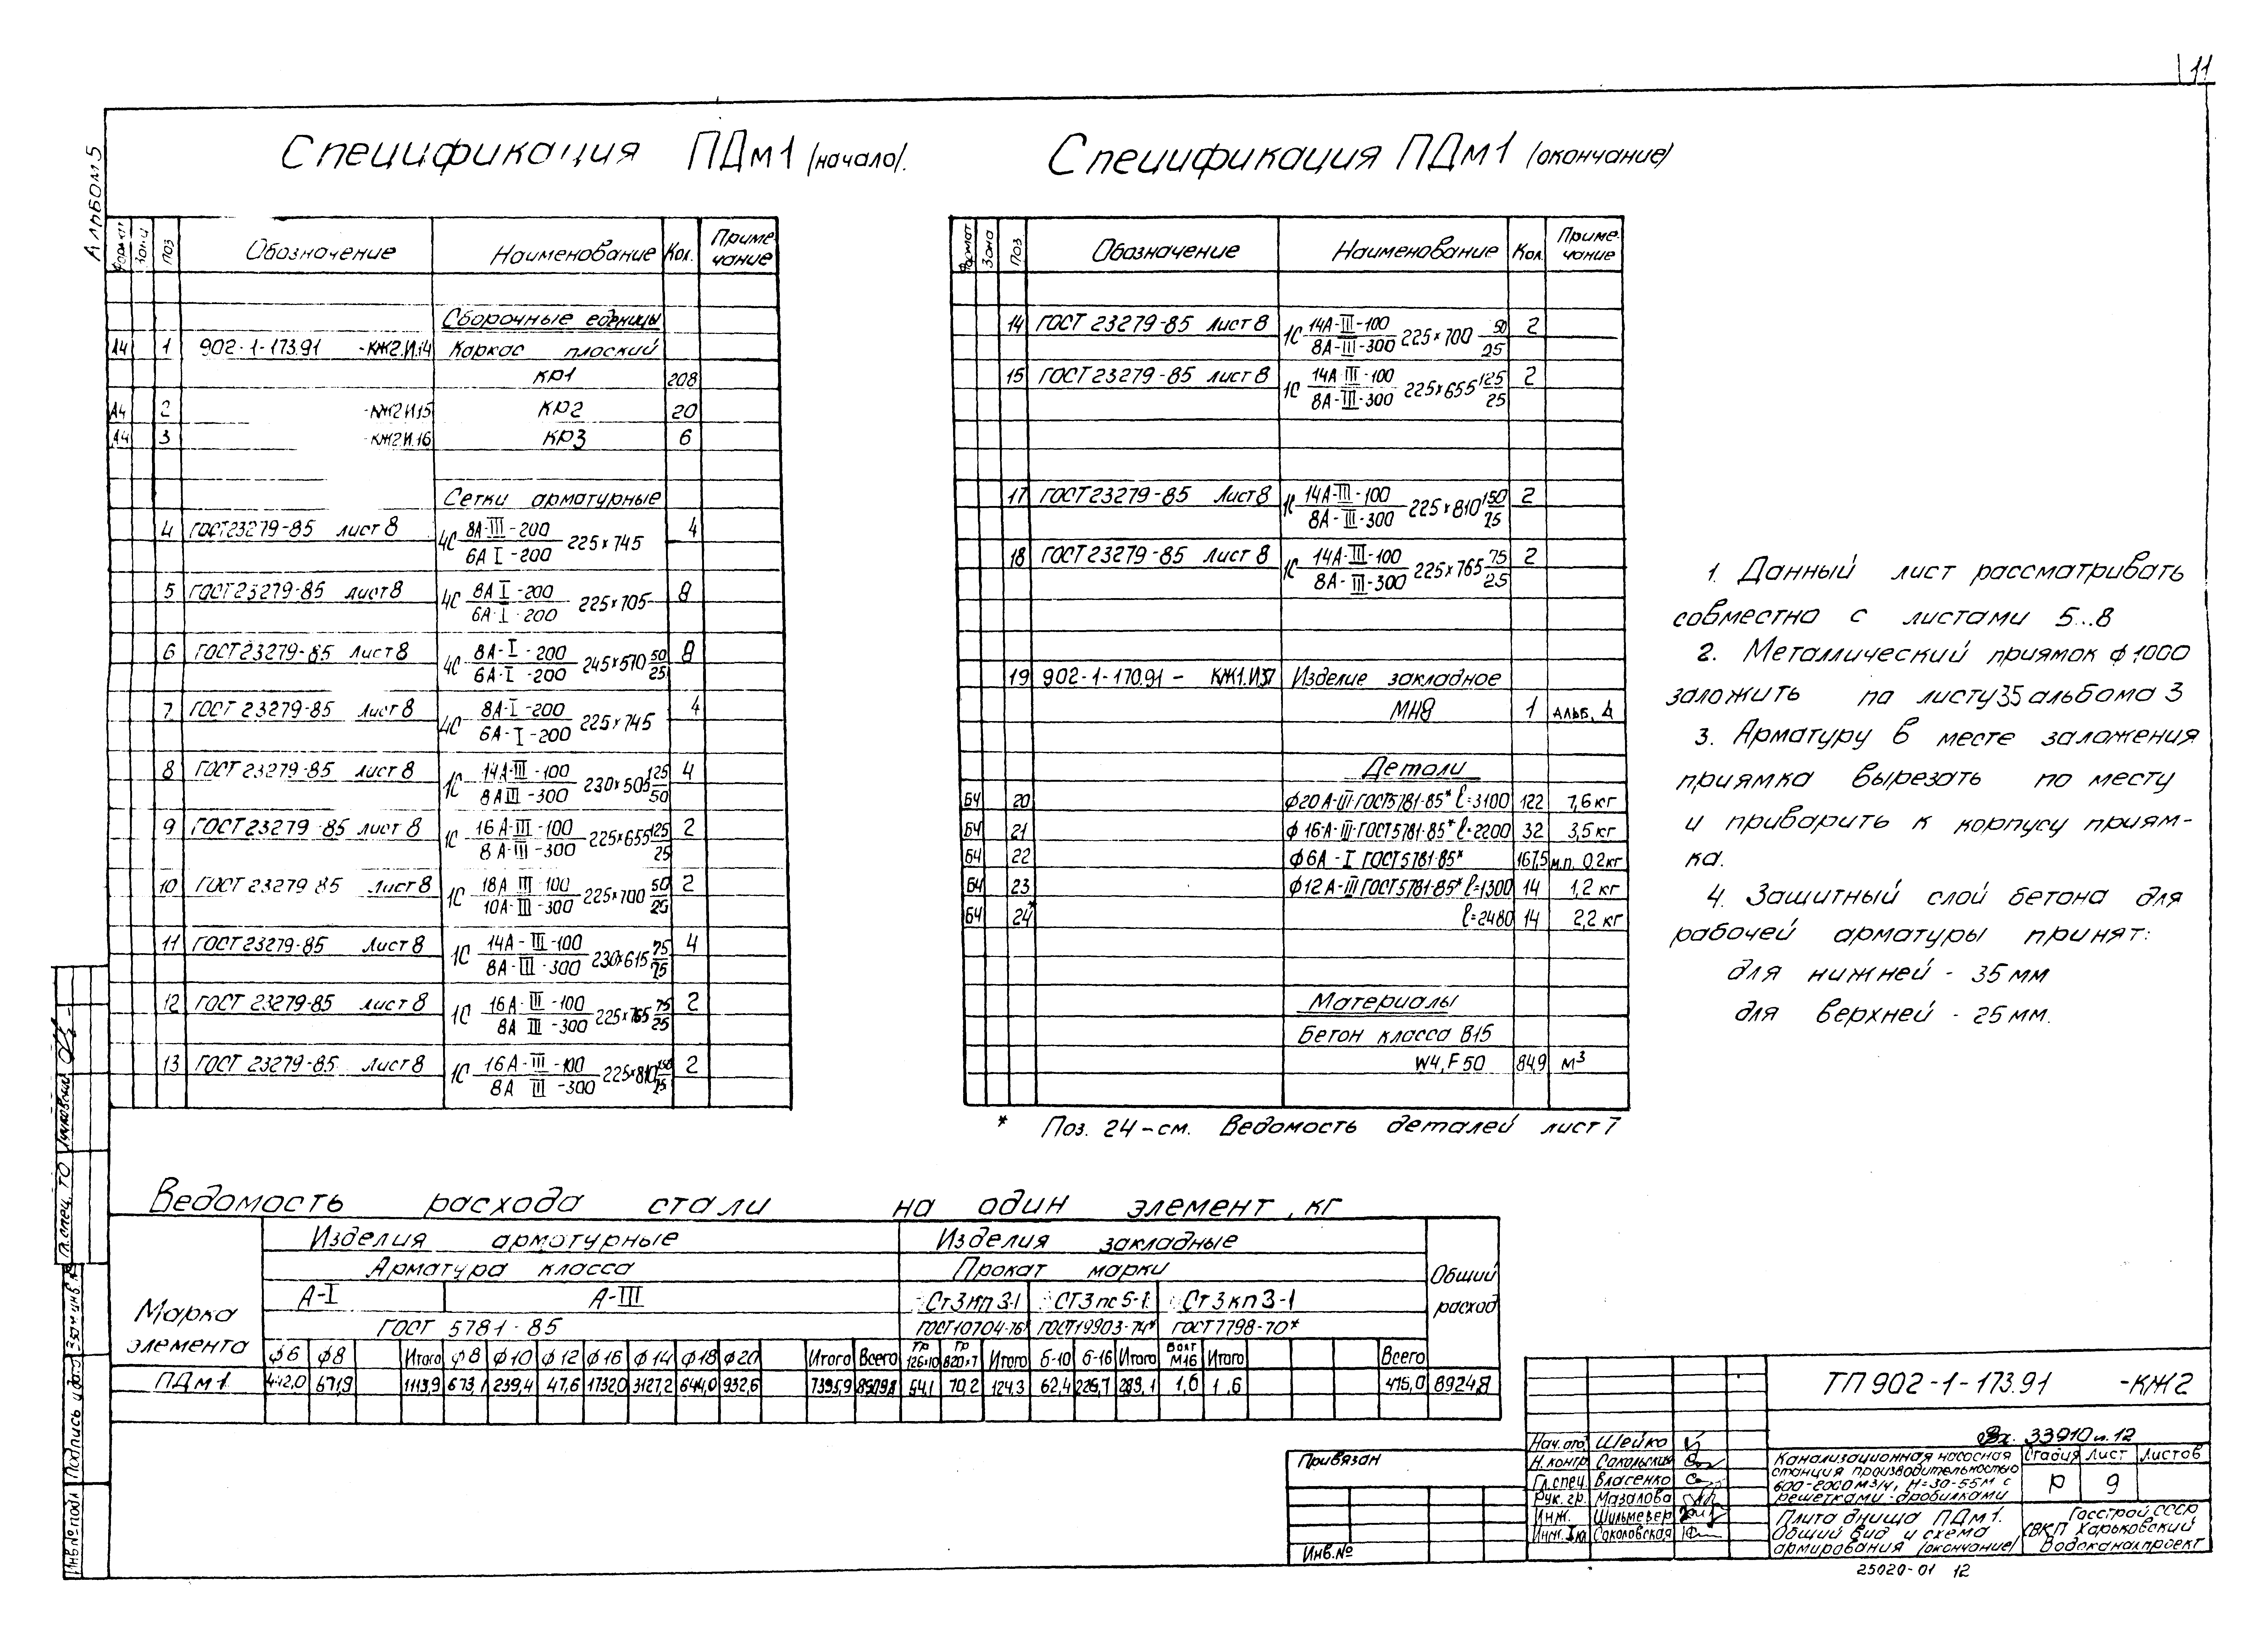 11
Альбом 5
Спецификация ПДм1 (начало).
Формат Зона Поз Обозначение Наименование Кол. Приме-чание
Сборочные еденицы
А4 1 902-1-173.91 -КЖ2.И.14 Каркас плоский
КР1 208
А4 2 -КЖ2.И15 КР2 20
А4 3 -КЖ2.И.16 КР3 6
Сетки арматурные
4 ГОСТ 23279-85 лист 8 4С 8А-III-200/6А I-200 225×745 4
5 ГОСТ 23279-85 лист 8 4С 8А I-200/6А-I-200 225×705 8
6 ГОСТ 23279-85 лист 8 4С 8А-I-200/6А-I-200 245×570 50/25 8
7 ГОСТ 23279-85 лист 8 4С 8А-I-200/6А-I-200 225×745 4
8 ГОСТ 23279-85 лист 8 1С 14А-III-100/8А III-300 230×505 125/50 4
9 ГОСТ 23279-85 лист 8 1С 16А-III-100/8А-III-300 225×655 125/25 2
10 ГОСТ 23279 85 лист 8 1С 18А III-100/10А-III-300 225×700 50/25 2
11 ГОСТ 23279-85 лист 8 1С 14А-III-100/8А-III-300 230×615 75/75 4
12 ГОСТ 23279-85 лист 8 1С 16А-III-100/8А III-300 225×765 75/25 2
13 ГОСТ 23279-85 лист 8 1С 16А-III-100/8А III-300 225×810 2
Спецификация ПДм1 (окончание)
Формат Зона Поз Обозначение Наименование Кол. Приме-чание
14 ГОСТ 23279-85 лист 8 1С 14А-III-100/8А-III-300 225×700 50/25 2
15 ГОСТ 23279-85 лист 8 1С 14А III-100/8А-III-300 225×655 125/25 2
17 ГОСТ 23279-85 лист 8 1С 14А-III-100/8А-III-300 225×810 150/25 2
18 ГОСТ 23279-85 лист 8 1С 14А-III-100/8А-III-300 225×765 75/25 2
19 902-1-170.91- КЖ1.И37 Изделие закладное
МН8 1 Альб. 4
Детали
БЧ 20 ф20А-III-ГОСТ5781-85* l=3100 122 7,6 кг
БЧ 21 ф16-А-III-ГОСТ5781-85* l=2200 32 3,5 кг
БЧ 22 ф6А-I ГОСТ5781-85* 167,5 м.п. 0.2кг
БЧ 23 ф12А-III ГОСТ5781-85* l=1300 14 1,2 кг
БЧ 24* l=2480 14 2,2 кг
Материалы
Бетон класса В15
W4, F50 84,9 м³
* Поз. 24-см. Ведомость деталей лист 7
1. Данный лист рассматривать
совместно с листами 5...8
2. Металлический приямок ф1000
заложить по листу 35 альбома 3
3. Арматуру в месте заложения
приямка вырезать по месту
и приварить к корпусу приям-
ка.
4. Защитный слой бетона для
рабочей арматуры принят:
для нижней - 35 мм
для верхней - 25 мм.
Ведомость расхода стали на один элемент, кг
Марка элемента Изделия арматурные Изделия закладные Общий расход
Арматура класса Прокат марки
А-I А-III Ст3кп3-1 СТ3пс5-1 Ст3кп3-1
ГОСТ 5781-85 ГОСТ10704-76* ГОСТ19903-74* ГОСТ7798-70*
ф6 ф8 Итого ф8 ф10 ф12 ф16 ф14 ф18 ф20 Итого Всего Тр 126×10 Тр 820×7 Итого б-10 б-16 Итого Болт М16 Итого Всего
ПДм1 442,0 671,9 1113,9 673,1 239,4 47,6 1732,0 3127,2 644,0 932,6 7395,9 8509,8 54,1 70,2 124,3 62,4 226,7 289,1 1,6 1,6 415,0 8924,8
Привязан
Инв.№
ТП 902-1-173.91 -КЖ2
Вх. 33910 и.12
Нач. отд. Шейко
Н. контр. Сокольская
Гл. спец. Власенко
Рук. гр. Мазалова
Инж. Шильмевер
Инж. Iк Соколовская
Канализационная насосная
станция производительностью
600-2000 м3/ч, Н=30-55м с
решетками-дробилками
Стадия Лист Листов
Р 9
Плита днища ПДм1.
Общий вид и схема
армирования (окончание)
Госстрой СССР
СВКП Харьковский
Водоканалпроект
25020-01 12
Гл. спец. ТО
Взам инв.№
Подпись и дата
Инв.№ подл